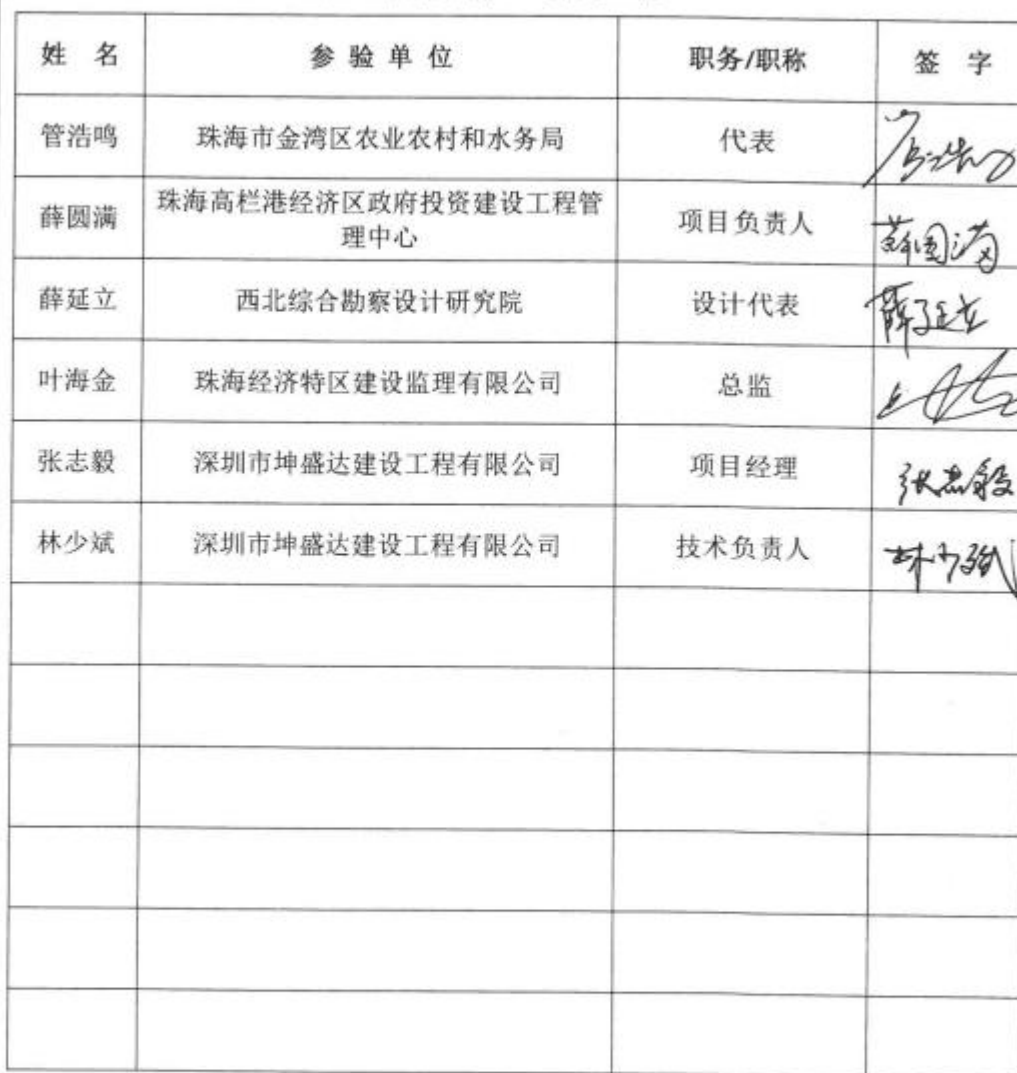 姓 名 参 验 单 位 职务/职称 签 字
管浩鸣 珠海市金湾区农业农村和水务局 代表
薛圆满 珠海高栏港经济区政府投资建设工程管
理中心 项目负责人 薛圆满
薛延立 西北综合勘察设计研究院 设计代表 薛延立
叶海金 珠海经济特区建设监理有限公司 总监
张志毅 深圳市坤盛达建设工程有限公司 项目经理 张志毅
林少斌 深圳市坤盛达建设工程有限公司 技术负责人 林少斌